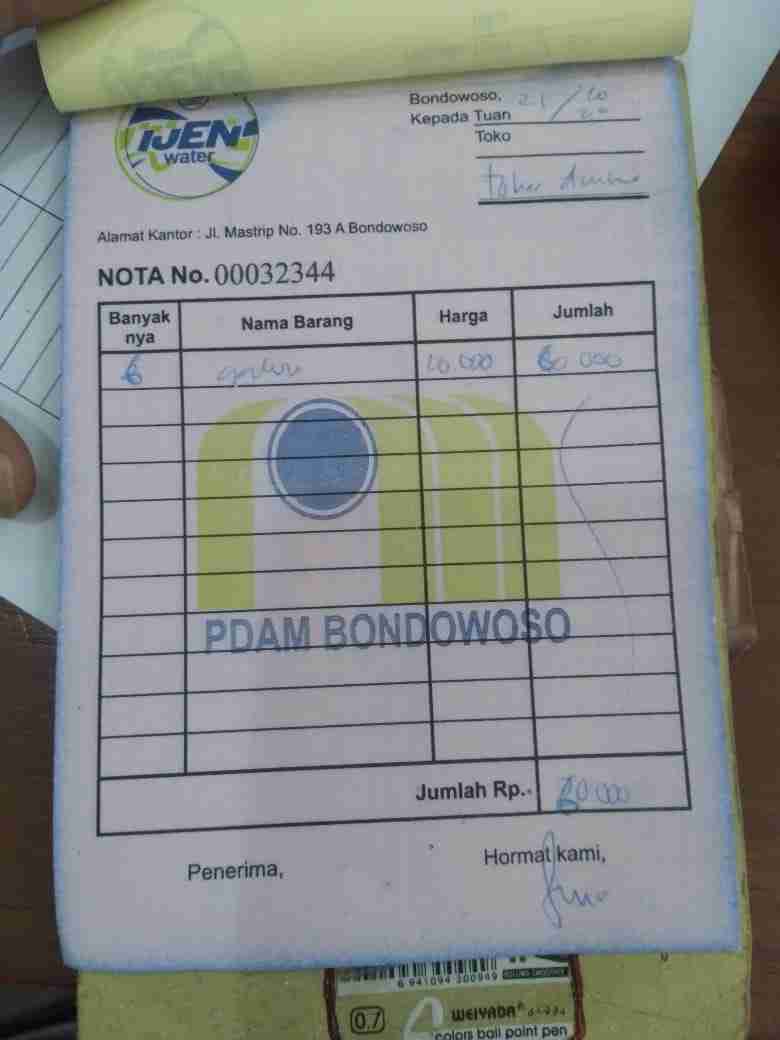 IJEN
water
Bondowoso, 21/10
Kepada Tuan
Toko
toko
Alamat Kantor : Jl. Mastrip No. 193 A Bondowoso
NOTA No. 00032344
Banyak nya Nama Barang Harga Jumlah
6 galon 10.000 60 000
PDAM BONDOWOSO
Jumlah Rp. 60 000
Penerima,
Hormat kami,
6 941094 300949
0.7 WEIYADA®
colors ball point pen